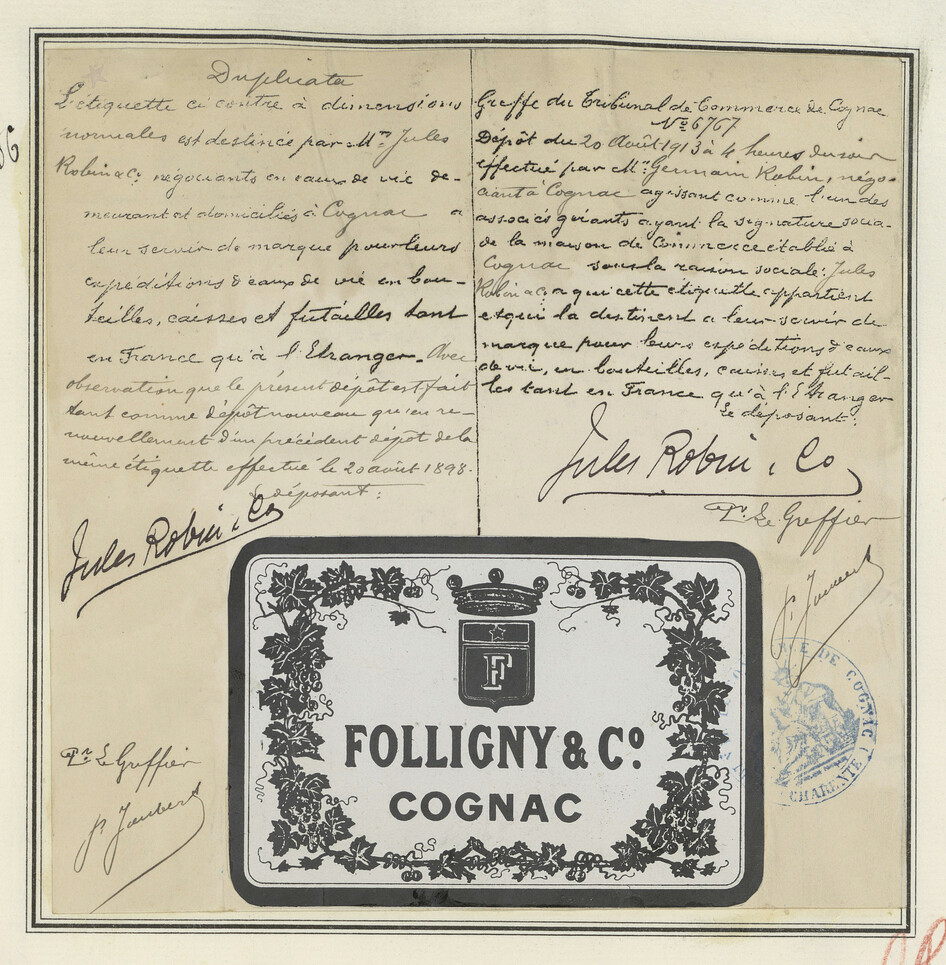 Duplicata
L'étiquette ci contre à dimensions
normales est destinée par M.rs Jules
Robin & Co. négociants en eaux de vie de-
meurant et domiciliés à Cognac a
leur servir de marque pour leurs
expéditions d'eaux de vie en bou-
teilles, caisses et futailles tant
en France qu'à l'Etranger. Avec
observation que le présent dépôt est fait
tant comme dépôt nouveau qu'en re-
nouvellement d'un précédent dépôt de la
même étiquette effectué le 20 août 1898.
Le déposant:
Jules Robin & Co
Pr. Le Greffier
P. Joubert
Greffe du Tribunal de Commerce de Cognac
No. 6767
Dépôt du 20 Août 1913 à 4 heures du soir
effectué par Mr. Germain Robin, négo-
ciant à Cognac agissant comme l'un des
associés gérants ayant la signature socia-
de la maison de Commerce établie à
Cognac sous la raison sociale: Jules
Robin & Co. a qui cette étiquette appartient
et qui la destinent a leur servir de
marque pour leurs expéditions d'eaux
de vie, en bouteilles, caisses et futail-
les tant en France qu'à l'Etranger
Le déposant:
Jules Robin & Co
Pr. Le Greffier
P. Joubert
F
FOLLIGNY & Co.
COGNAC
DE COGNAC
CHARENTE